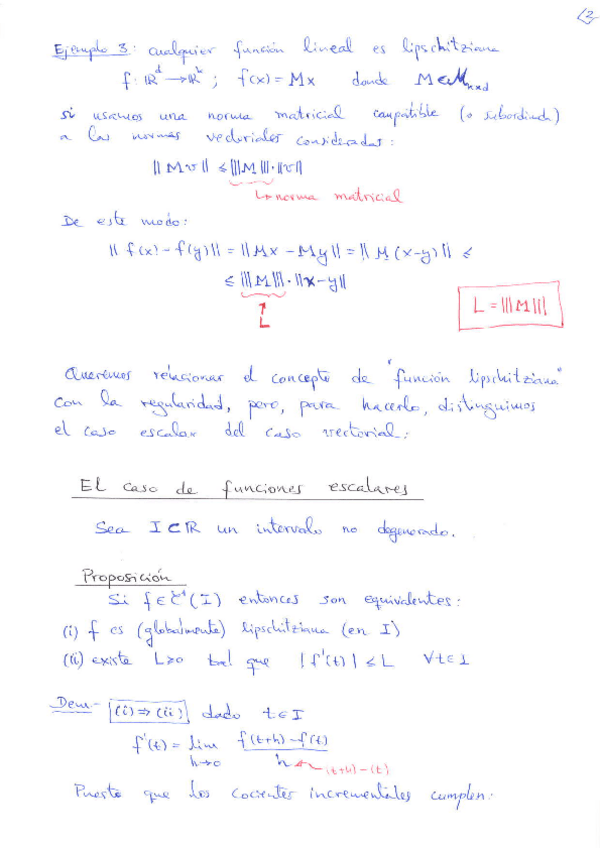 (2)
Ejemplo 3: cualquier función lineal es lipschitziana
f: ℝᵈ → ℝᵏ ; f(x) = Mx donde M ∈ M_{k×d}
si usamos una norma matricial compatible (o subordinada)
a las normas vectoriales consideradas:
||Mv|| ≤ |||M|||·||v||
↳ norma matricial
De este modo:
|| f(x) - f(y) || = || Mx - My || = || M (x-y) || ≤
≤ |||M|||·||x-y||
L
L = |||M|||
Queremos relacionar el concepto de "función lipschitziana"
con la regularidad, pero, para hacerlo, distinguimos
el caso escalar del caso vectorial:
El caso de funciones escalares
Sea I ⊂ ℝ un intervalo no degenerado.
Proposición
Si f ∈ C¹(I) entonces son equivalentes:
(i) f es (globalmente) lipschitziana (en I)
(ii) existe L>0 tal que |f'(t)| ≤ L ∀t∈I
Dem- (i) ⇒ (ii) dado t ∈ I
f'(t) = lim_{h→0} (f(t+h) - f(t))/h
(t+h)-(t)
Puesto que los cocientes incrementales cumplen: